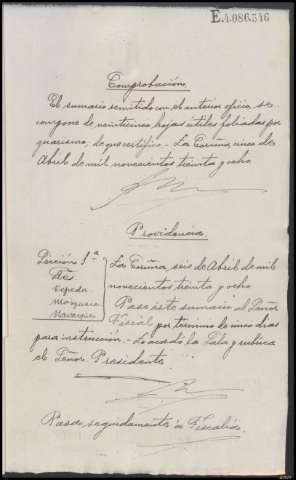 E 4.086.346
Comprobación
El sumario remitido con el anterior oficio, se
compone de veinticinco hojas útiles foliadas por
guarismo, de que certifico. - La Coruña cinco de
Abril de mil novecientos treinta y ocho
Providencia
Sección 1ª
Sres.
Cepeda
Mosquera
La Coruña, seis de Abril de mil
novecientos treinta y ocho
Pase éste sumario al Señor
Fiscal por termino de cinco dias
para instrucción. Lo acordó la Sala y rubrica
el Señor Presidente
Pasa seguidamente a Fiscalia.